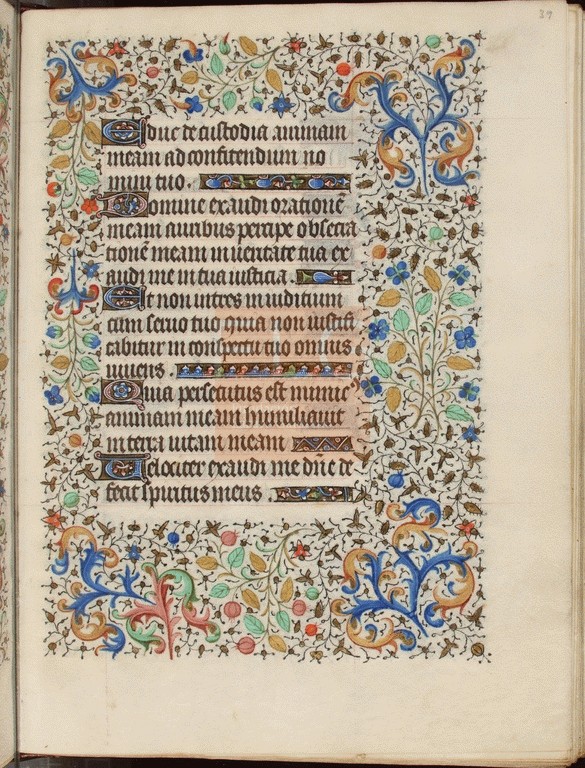 39
Educ de custodia animam
meam ad confitendum no
mini tuo.
Domine exaudi orationē
meam auribus percipe obsecra
tionē meam in veritate tua ex
audi me in tua iusticia.
Et non intres in iudicium
cum servo tuo quia non iustifi
cabitur in conspectu tuo omnis
vivens.
Quia persecutus est inimic
animam meam humiliavit
in terra vitam meam
Velociter exaudi me dn̄e de
fecit spiritus meus.